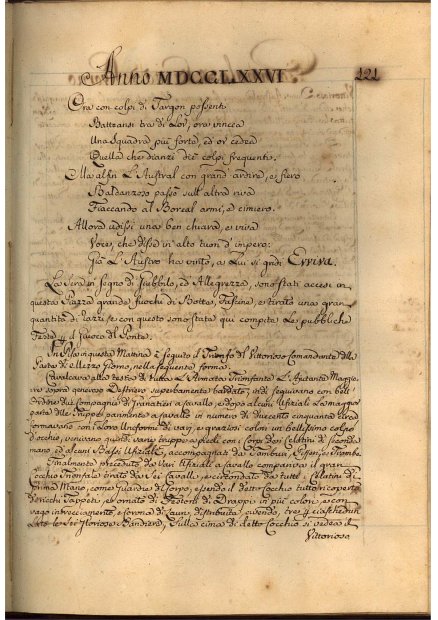 Anno MDCCLXXVI 121
Ora con colpi di Targon possenti
Battransi tra di Lor, ora vincea
Una Squadra più forte, ed or cedea
Quella che dianzi diè colpi frequenti.
Ma alfin L'Austral con grand'ardire, e fiero
Baldanzoso passò sull'altra riva
Fiaccando al Boreal armi, e cimiero.
Allora udissi una ben chiara, e viva
Voce, che disse in alto tuon d'impero:
Già L'Austro ha vinto, a Lui si gridi Evviva.
La Sera in segno di Giubbilo, ed Allegrezza, sono stati accesi in
questa Piazza grande fuochi di Botte, Fascine, e tirato una gran
quantità di Razzi, e con questo sono state qui compite Le pubbliche
Feste del Gioco del Ponte.
In Pisa in questa Mattina è seguito il Trionfo del Vittorioso Comandante della
Parte di Mezzo Giorno, nella seguente forma
Cavalcava alla testa di tutta L'Armata Trionfante L'Aiutante Maggiore
sopra generoso Destriero superbamente bardato, indi seguivano con bell'
Ordine due Compagnie di Granatieri a cavallo, e dopo alcuni Ufiziali La maggior
parte delle Truppe parimente a cavallo in numero di duecento cinquanta che
formavano con i Loro Uniformi di vari, e graziosi colori un bellissimo colpo
d'occhio, venivano quindi varie truppe a piedi con i Corpi dei Celatini di seconda
mano ed alcuni Bassi Ufiziali, accompagnate da Tamburi, Pifferi, e Trombe
Finalmente preceduto da Vari Ufiziali a cavallo compariva il gran
Cocchio Trionfale tirato da Sei Cavalli, e circondato da tutti i Celatini di
Prima Mano, come Guardie di Corpo, essendo il detto Cocchio tutto ricoperto
di ricchi Tappeti, e ornato di Festoni di Drappi in più colori, e con
vago intrecciamento, e corona di Lauri, distribuita, avendo, tre per ciaschedun
Lato Le Sei Gloriose Bandiere, Sulla cima di detto Cocchio si vedea il
Vittorioso